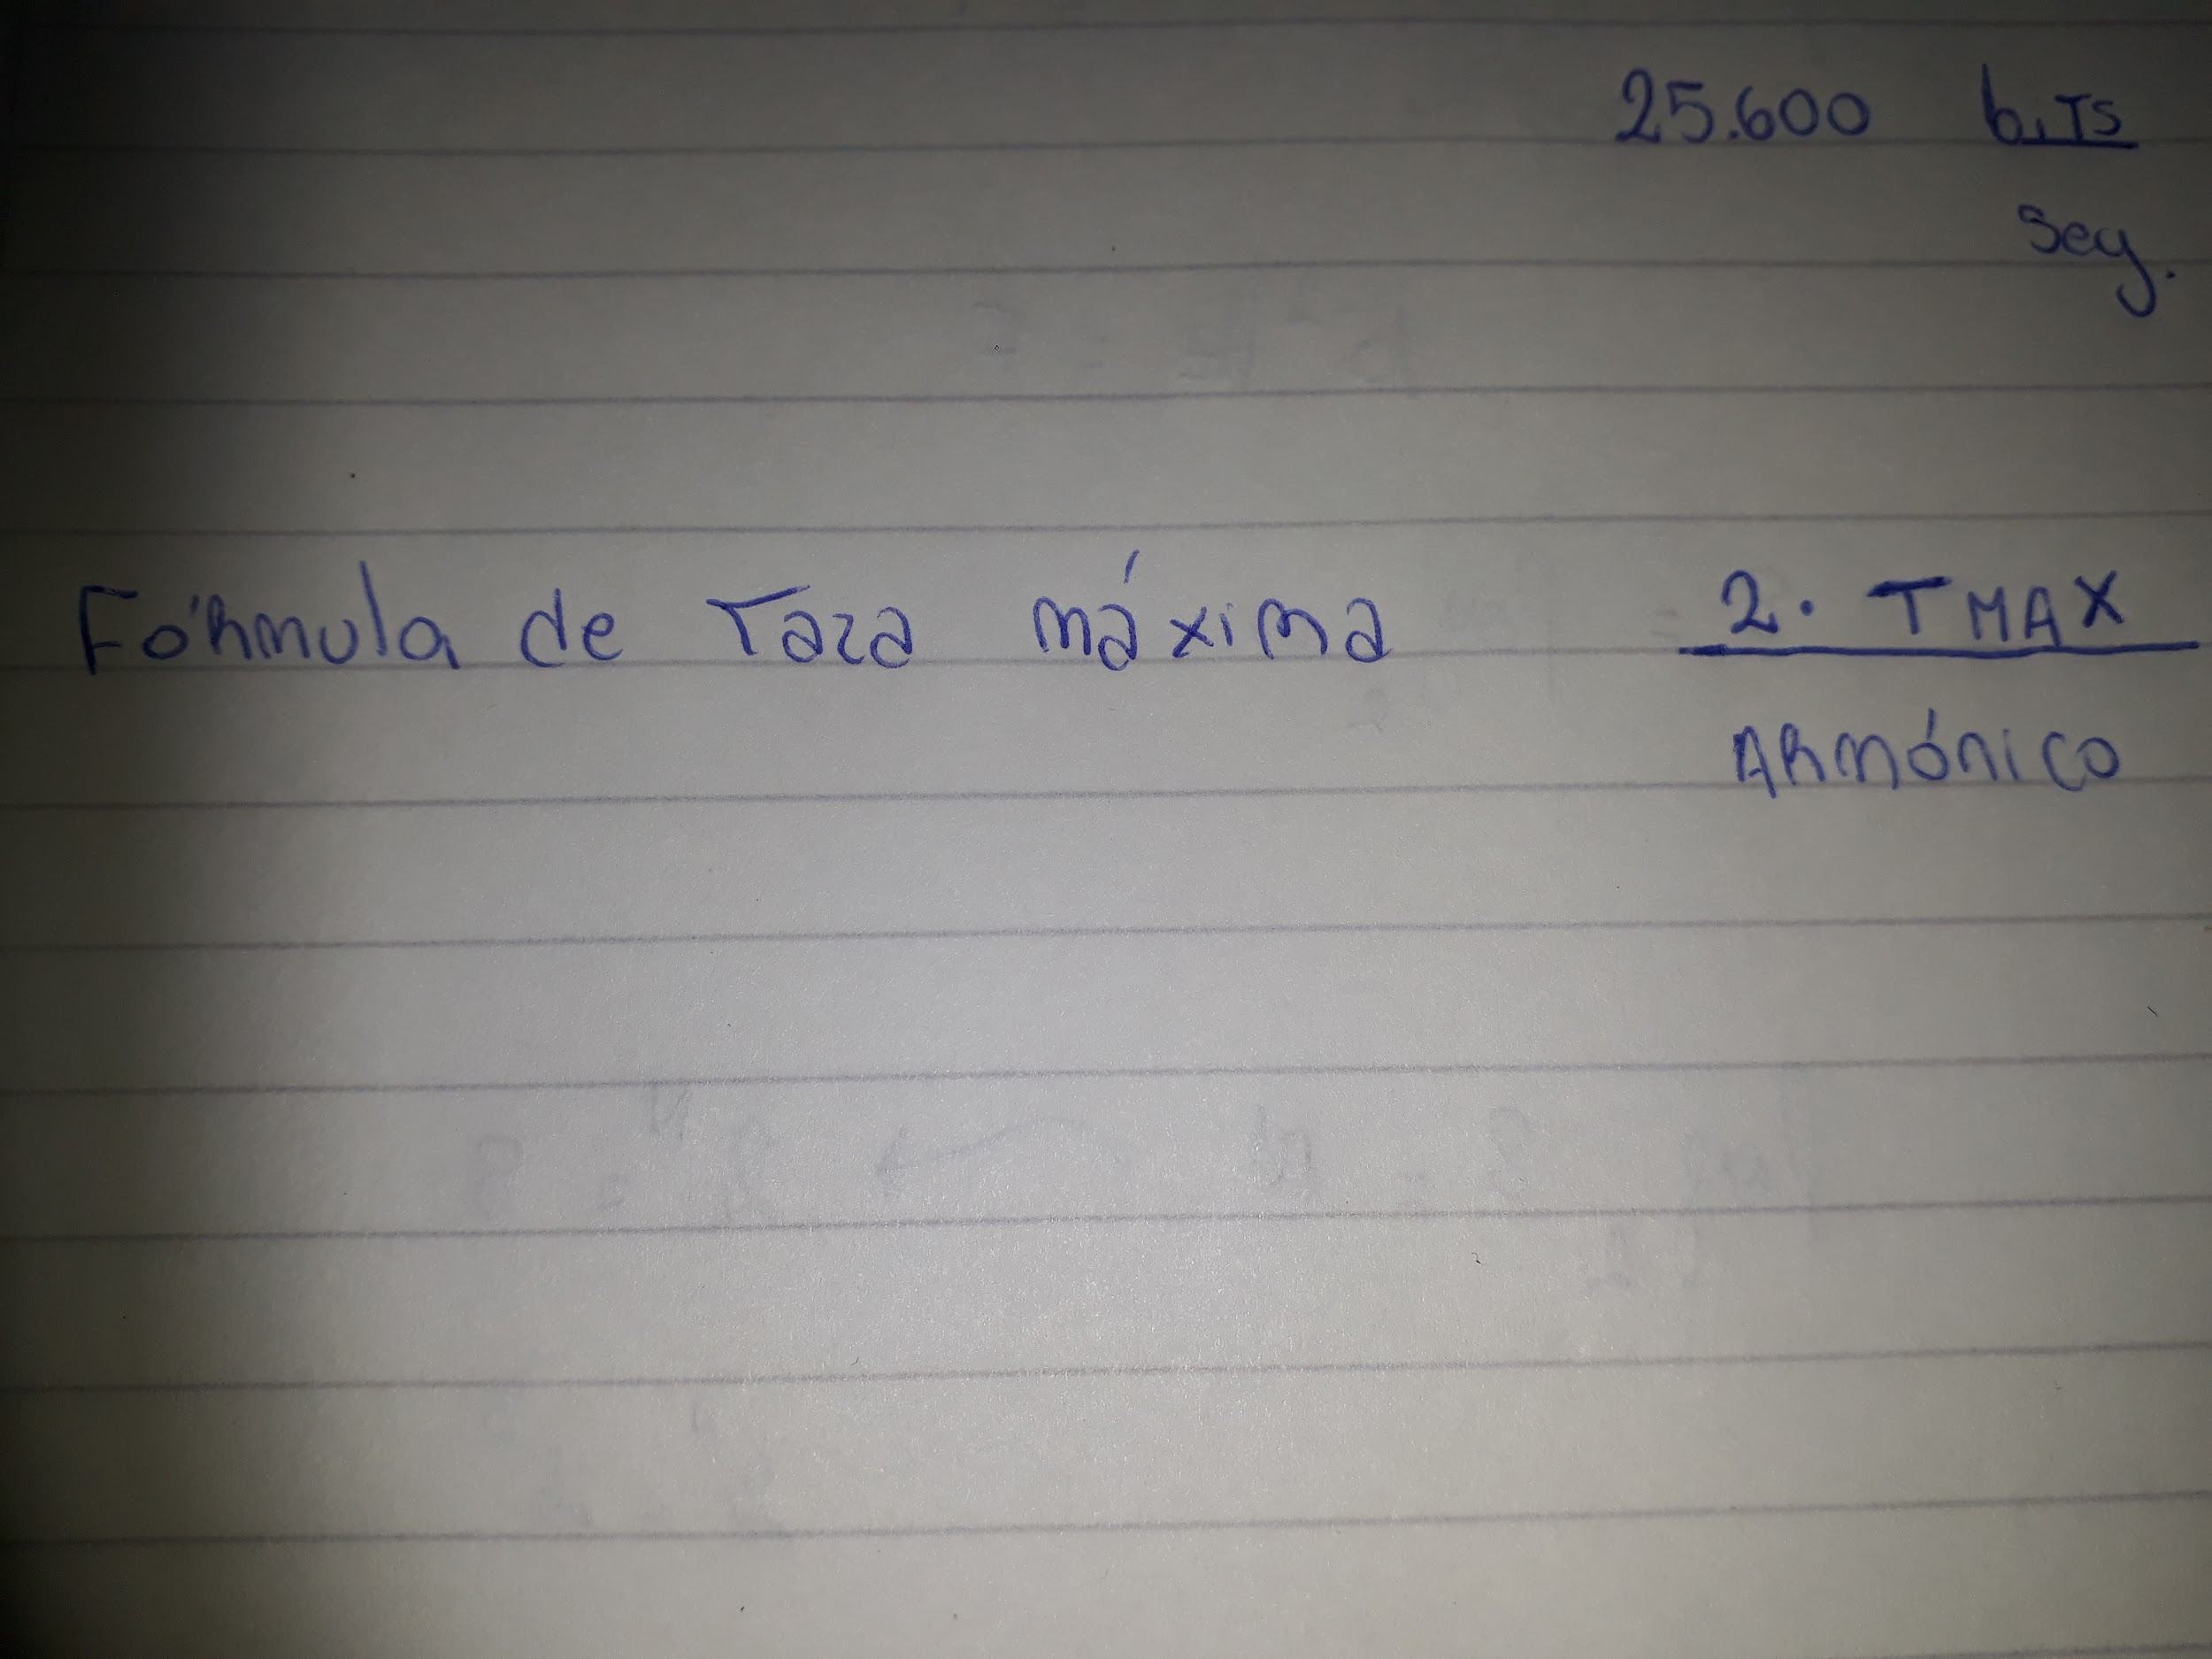 25.600 bits
seg.
Fórmula de Taza máxima 2. TMAX
ARmónico